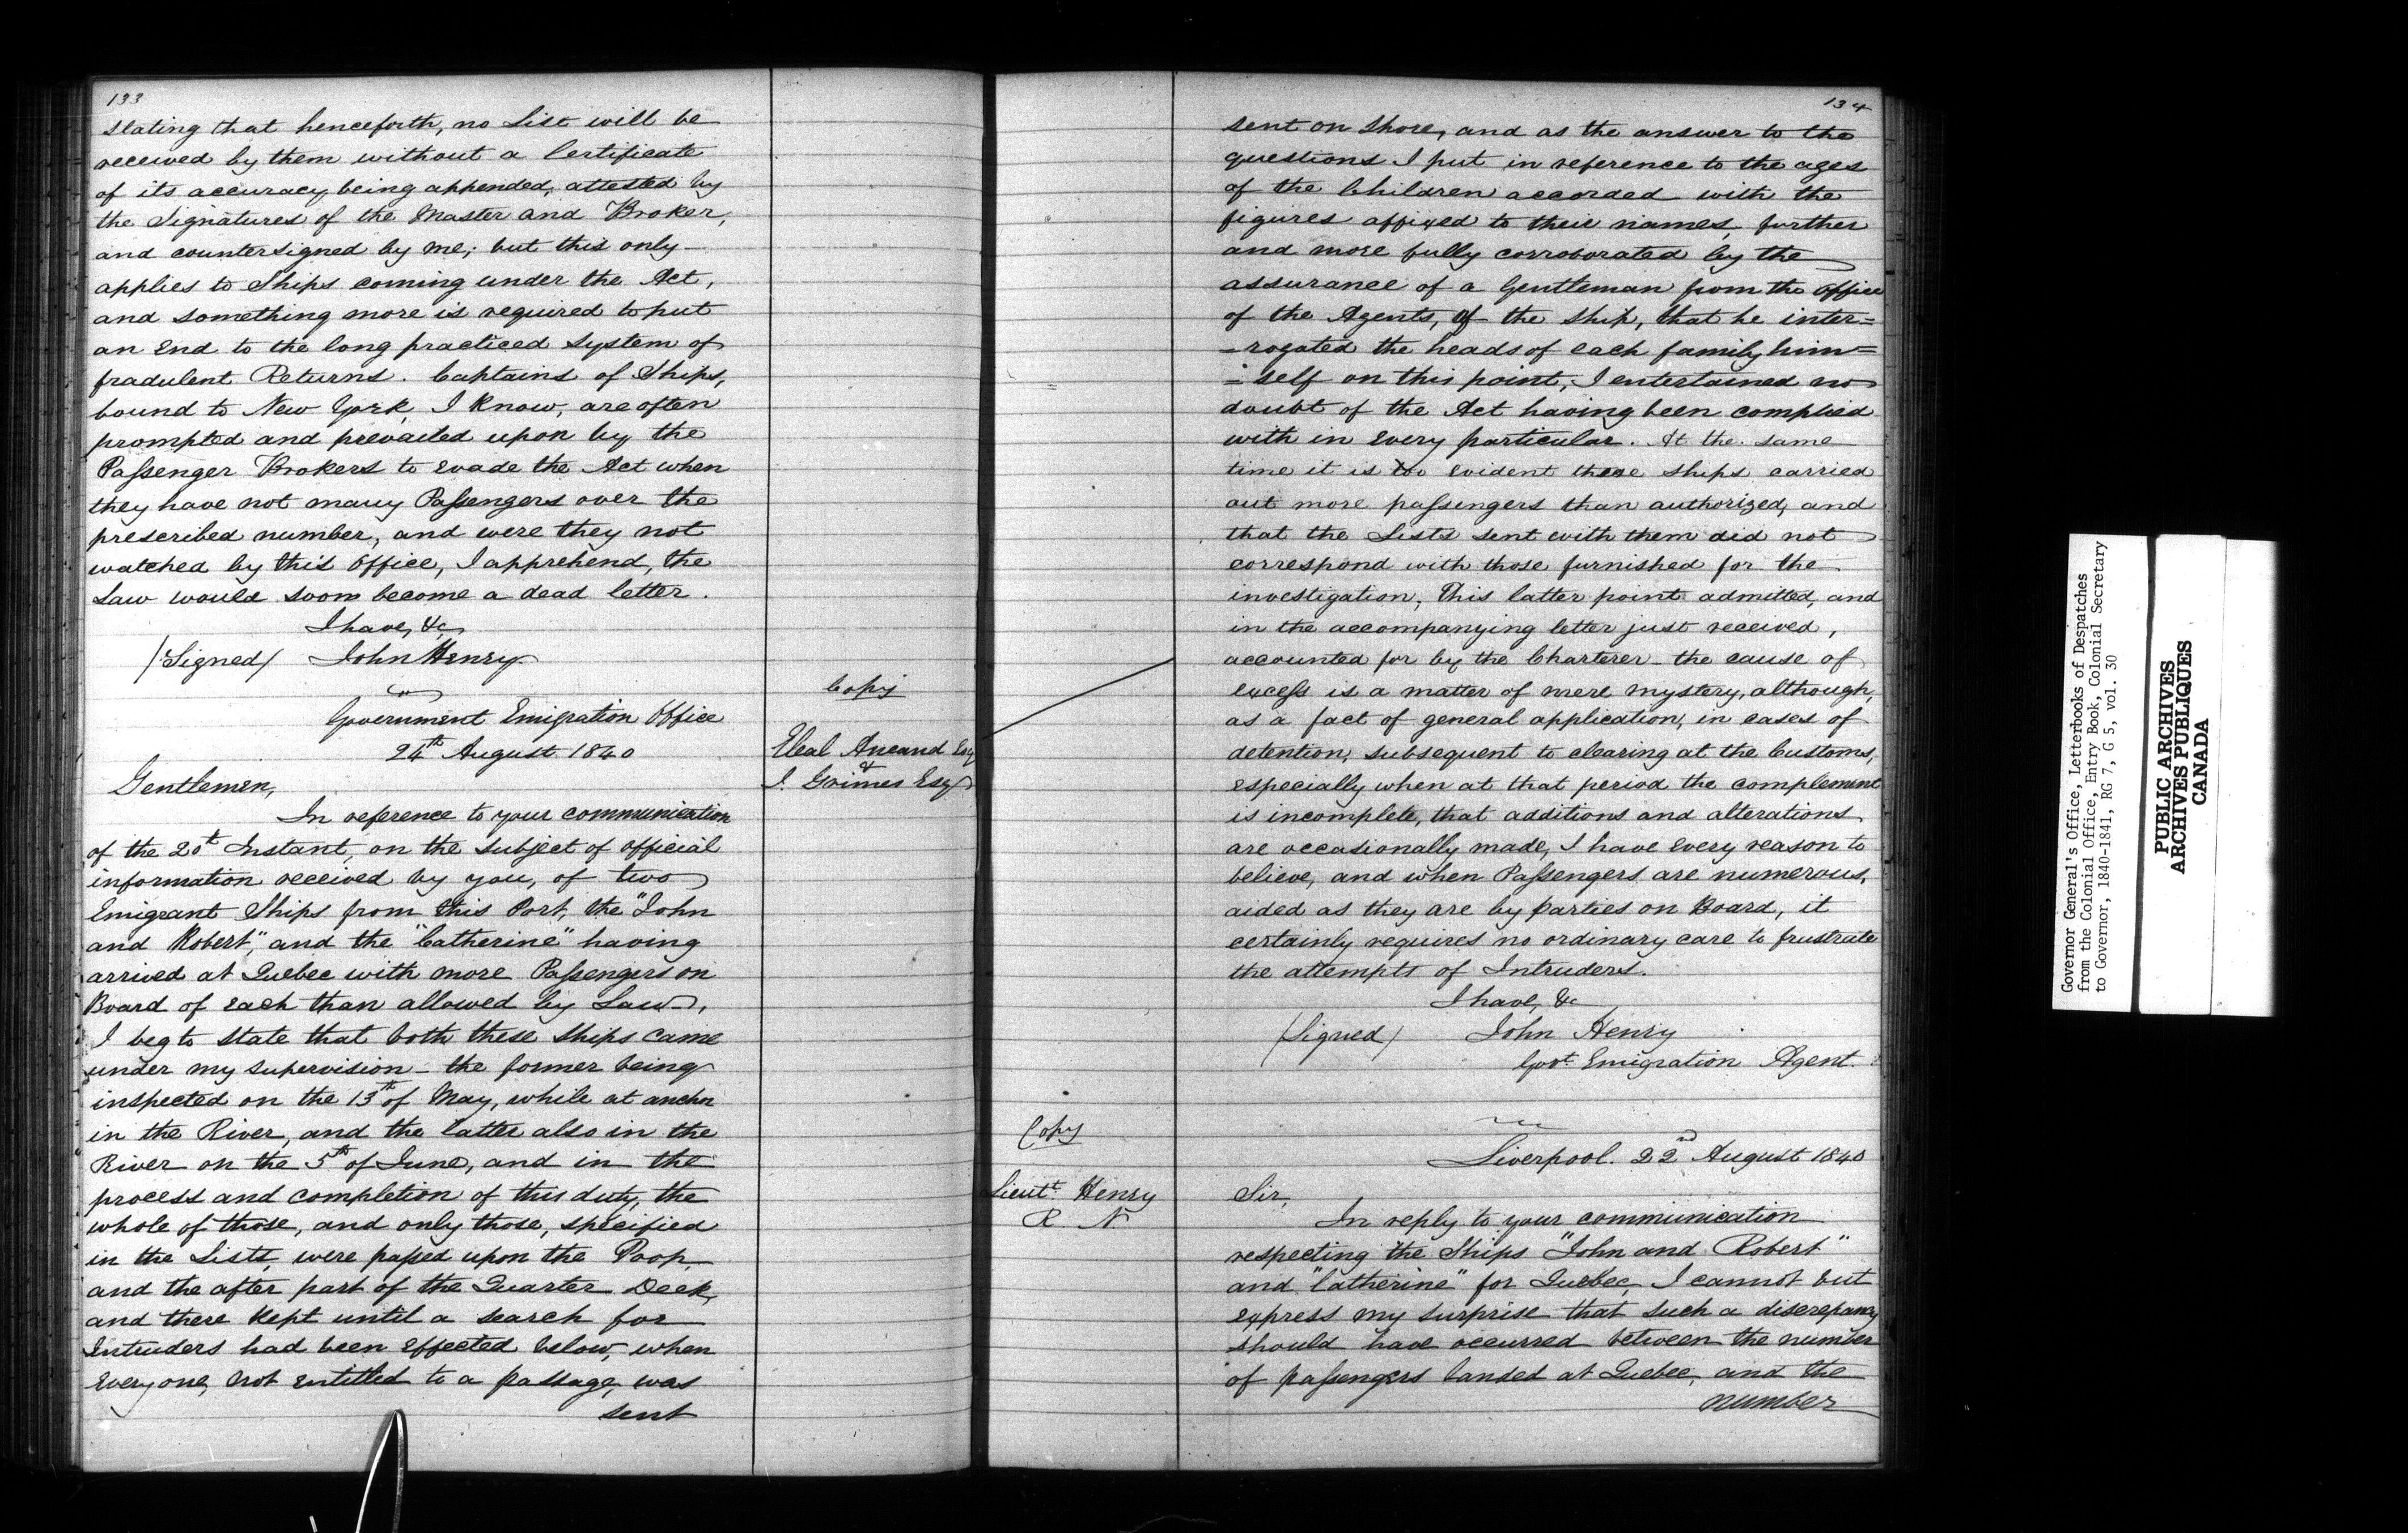 133
stating that henceforth, no List will be
received by them without a Certificate
of its accuracy being appended, attested by
the Signatures of the Master and Broker,
and countersigned by me; but this only
applies to Ships coming under the Act,
and something more is required to put
an End to the long practiced system of
fradulent Returns. Captains of Ships,
bound to New York, I know, are often
prompted and prevailed upon by the
Passenger Brokers to evade the Act when
they have not many Passengers over the
prescribed number, and were they not
watched by this Office, I apprehend, the
Law would soon become a dead letter.
I have, &c,
(Signed) John Henry.
Copy
Government Emigration Office
24th August 1840
&
I. Grimes Esq
Gentlemen,
In reference to your communication
of the 20t Instant, on the subject of official
information received by you, of two
Emigrant Ships from this Port, the "John
and Robert", and the "Catherine" having
arrived at Quebec with more Passengers on
Board of each than allowed by Law,
I beg to state that both these Ships came
under my supervision - the former being
inspected on the 13th of May, while at anchor
in the River, and the latter also in the
River on the 5th of June, and in the
process and completion of this duty, the
whole of those, and only those, specified
in the Lists, were passed upon the Poop,
and the after part of the Quarter Deck,
and there kept until a search for
Intruders had been effected below, when
everyone, not entitled to a passage, was
sent
134
sent on Shore, and as the answer to the
questions I put in reference to the ages
of the Children accorded with the
figures affixed to their names, further
and more fully corroborated by the
assurance of a Gentleman from the Office
of the Agents, of the Ship, that he inter=
=rogated the heads of each family him=
=self on this point, I entertained no
doubt of the Act having been complied
with in every particular. At the same
time it is too evident these ships carried
out more passengers than authorized, and
that the Lists sent with them did not
correspond with those furnished for the
investigation, This latter point admitted, and
in the accompanying letter just received,
accounted for by the Charterer - the cause of
excess is a matter of mere mystery, although,
as a fact of general application, in cases of
detention, subsequent to clearing at the Customs,
especially when at that period the complement
is incomplete, that additions and alterations
are occasionally made, I have every reason to
believe, and when Passengers are numerous,
aided as they are by parties on Board, it
certainly requires no ordinary care to frustrate
the attempts of Intruders.
I have, &c
(Signed) John Henry
Govt. Emigration Agent.
Copy
Liverpool. 22nd August 1840
Lieutt. Henry
R. N
Sir,
In reply to your communication
respecting the Ships "John and Robert"
and "Catherine" for Quebec, I cannot but
express my surprise that such a discrepancy
should have occurred between the number
of passengers landed at Quebec, and the
number
Governor General's Office, Letterbooks of Despatches
from the Colonial Office, Entry Book, Colonial Secretary
to Governor, 1840-1841, RG 7, G 5, vol. 30
PUBLIC ARCHIVES
ARCHIVES PUBLIQUES
CANADA